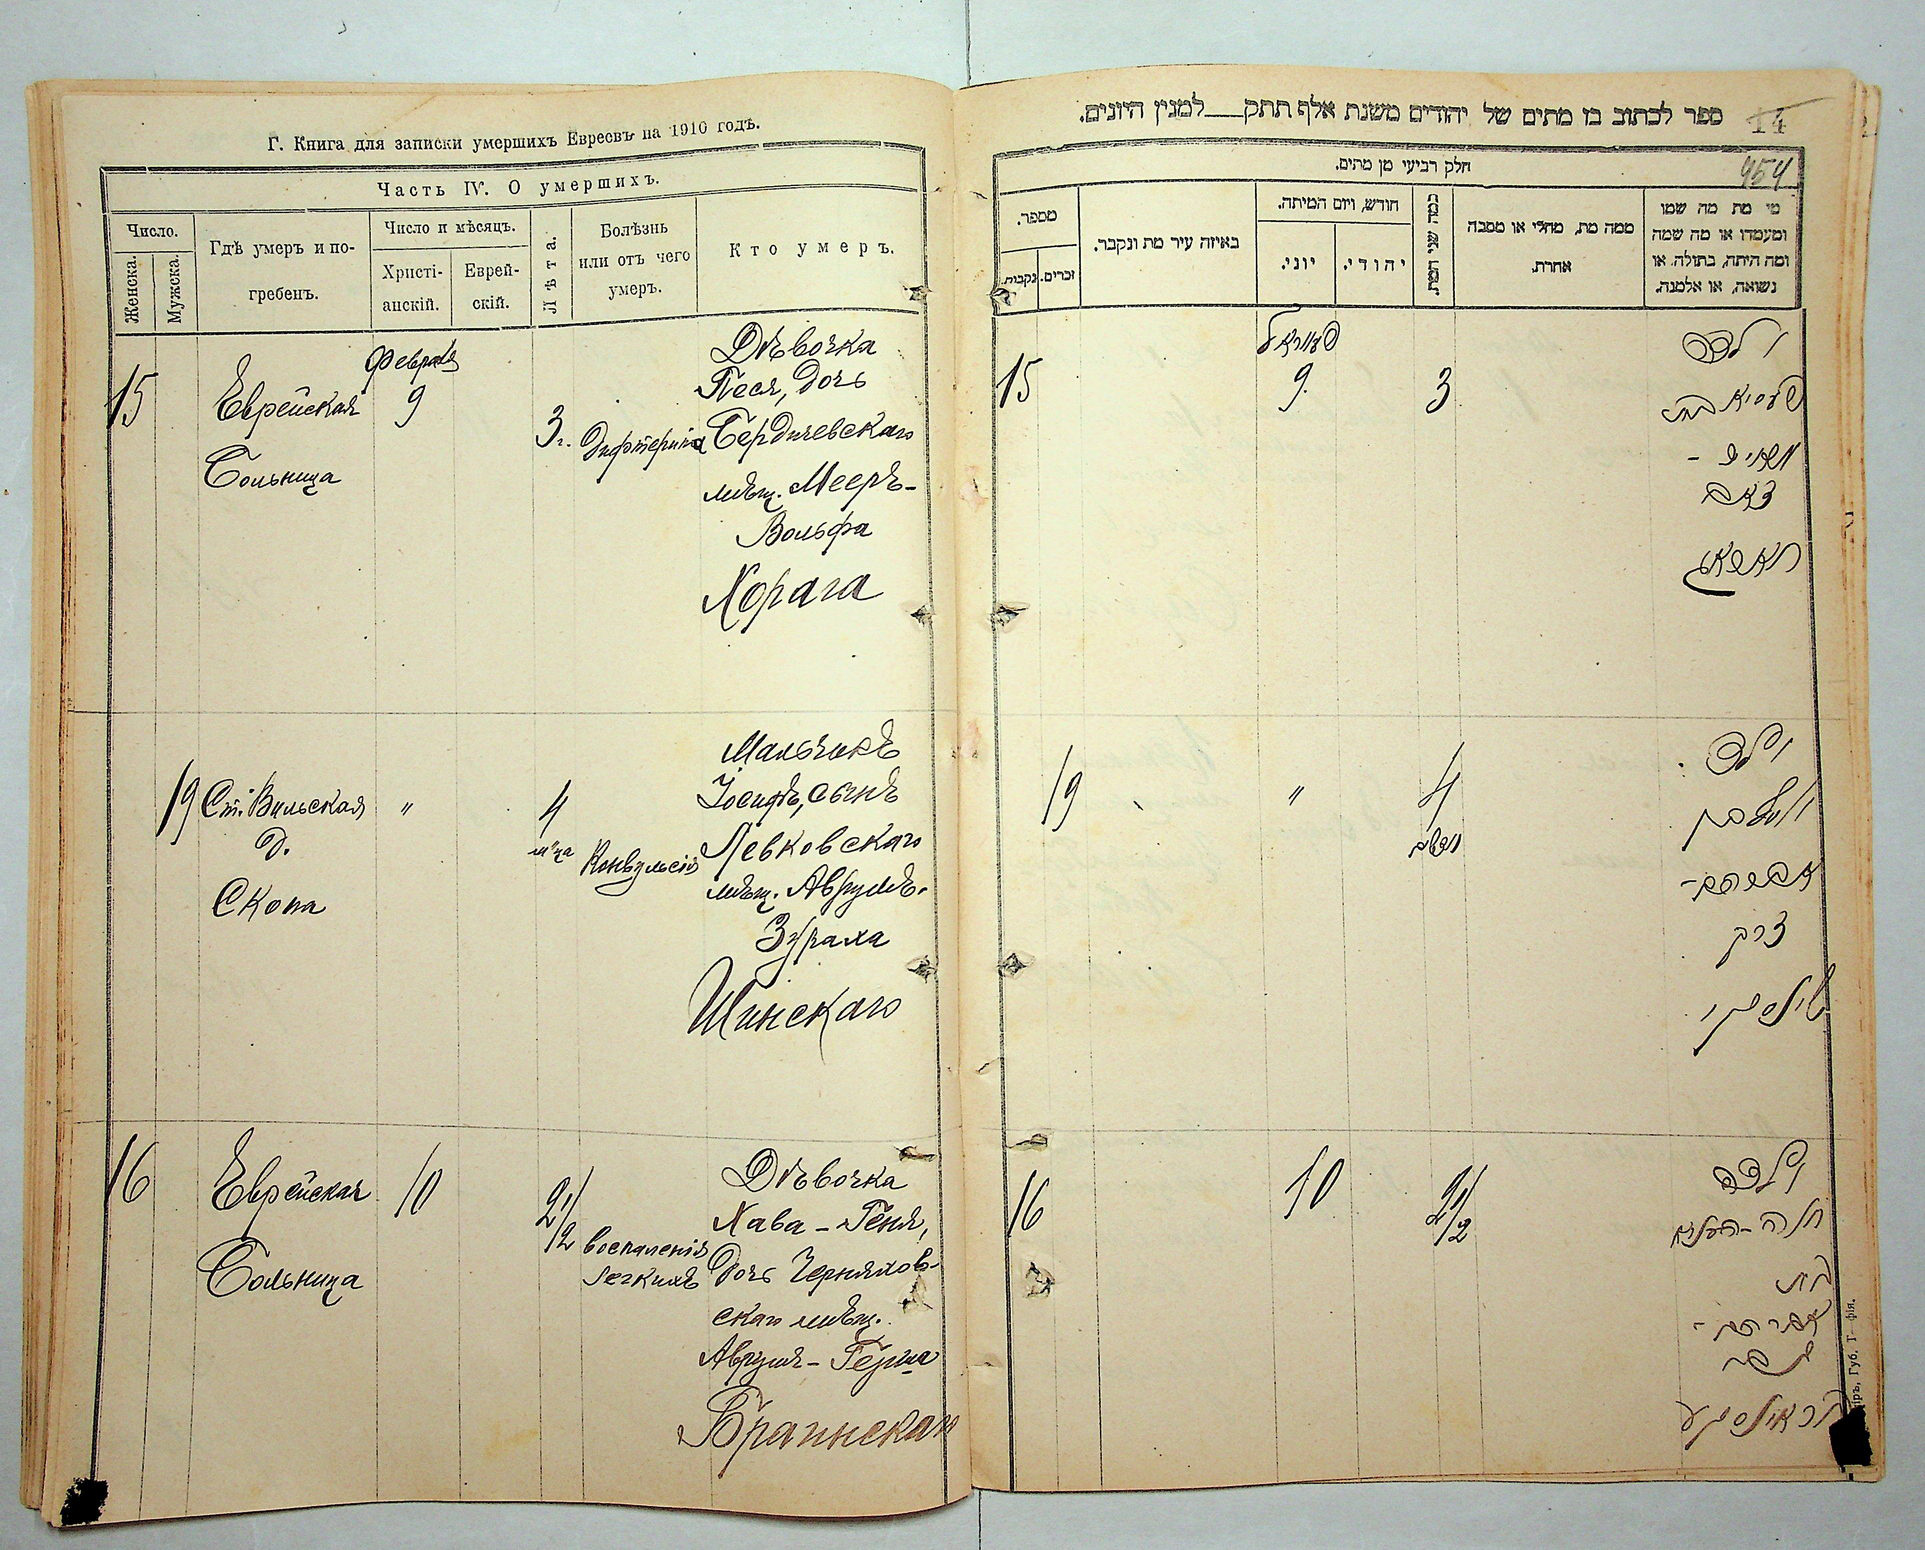 Г. Книга для записки умершихъ Евреевъ на 1910 годъ.
Часть IV. О умершихъ.
Число.
Женска.
Мужска.
Гдѣ умеръ и по-
гребенъ.
Число и мѣсяцъ.
Христі-
анскій.
Еврей-
скій.
Лѣта.
Болѣзнь
или отъ чего
умеръ.
Кто умеръ.
15
Еврейская
Больница
Февраля
9
3 г.
Дифтерита
Дѣвочка
Песя, дочь
Бердичевскаго
мѣщ. Мееръ-
Вольфа
Хорага
19
Ст. Вильская
д.
Скопа
"
4
м-ца
Конвульсія
Мальчикъ
Іосифъ, сынъ
Левковскаго
мѣщ. Аврумъ-
Зураха
Шинскаго
16
Еврейская
Больница
10
2 1/2
воспаленія
легкихъ
Дѣвочка
Хава-Геня,
дочь Черняхов-
скаго мѣщ.
Аврумъ-Герша
ספר לכתוב בו מתים של יהודים משנת אלף תתק___למנין היונים.
14
454
חלק רביעי מן מתים.
מספר.
נקבות.
זכרים.
באיזה עיר מת ונקבר.
חודש, ויום המיתה.
יוני.
יהודי.
כמה שני המת.
ממה מת, מחלי או מסבה
אחרת.
מי מת מה שמו
ומעמדו או מה שמה
ומה היתה, בתולה. או
נשואה, או אלמנה.
15
פעווראל
9.
3
ילדה
פעסיא בת
מאיר -
זאב
19
"
4
ילד
אברהם-
זרח
שינסקי
16
10
2 1/2
ילדה
חוה-העניא
בת
אברהם-
הירש
Губ. Т—фія.